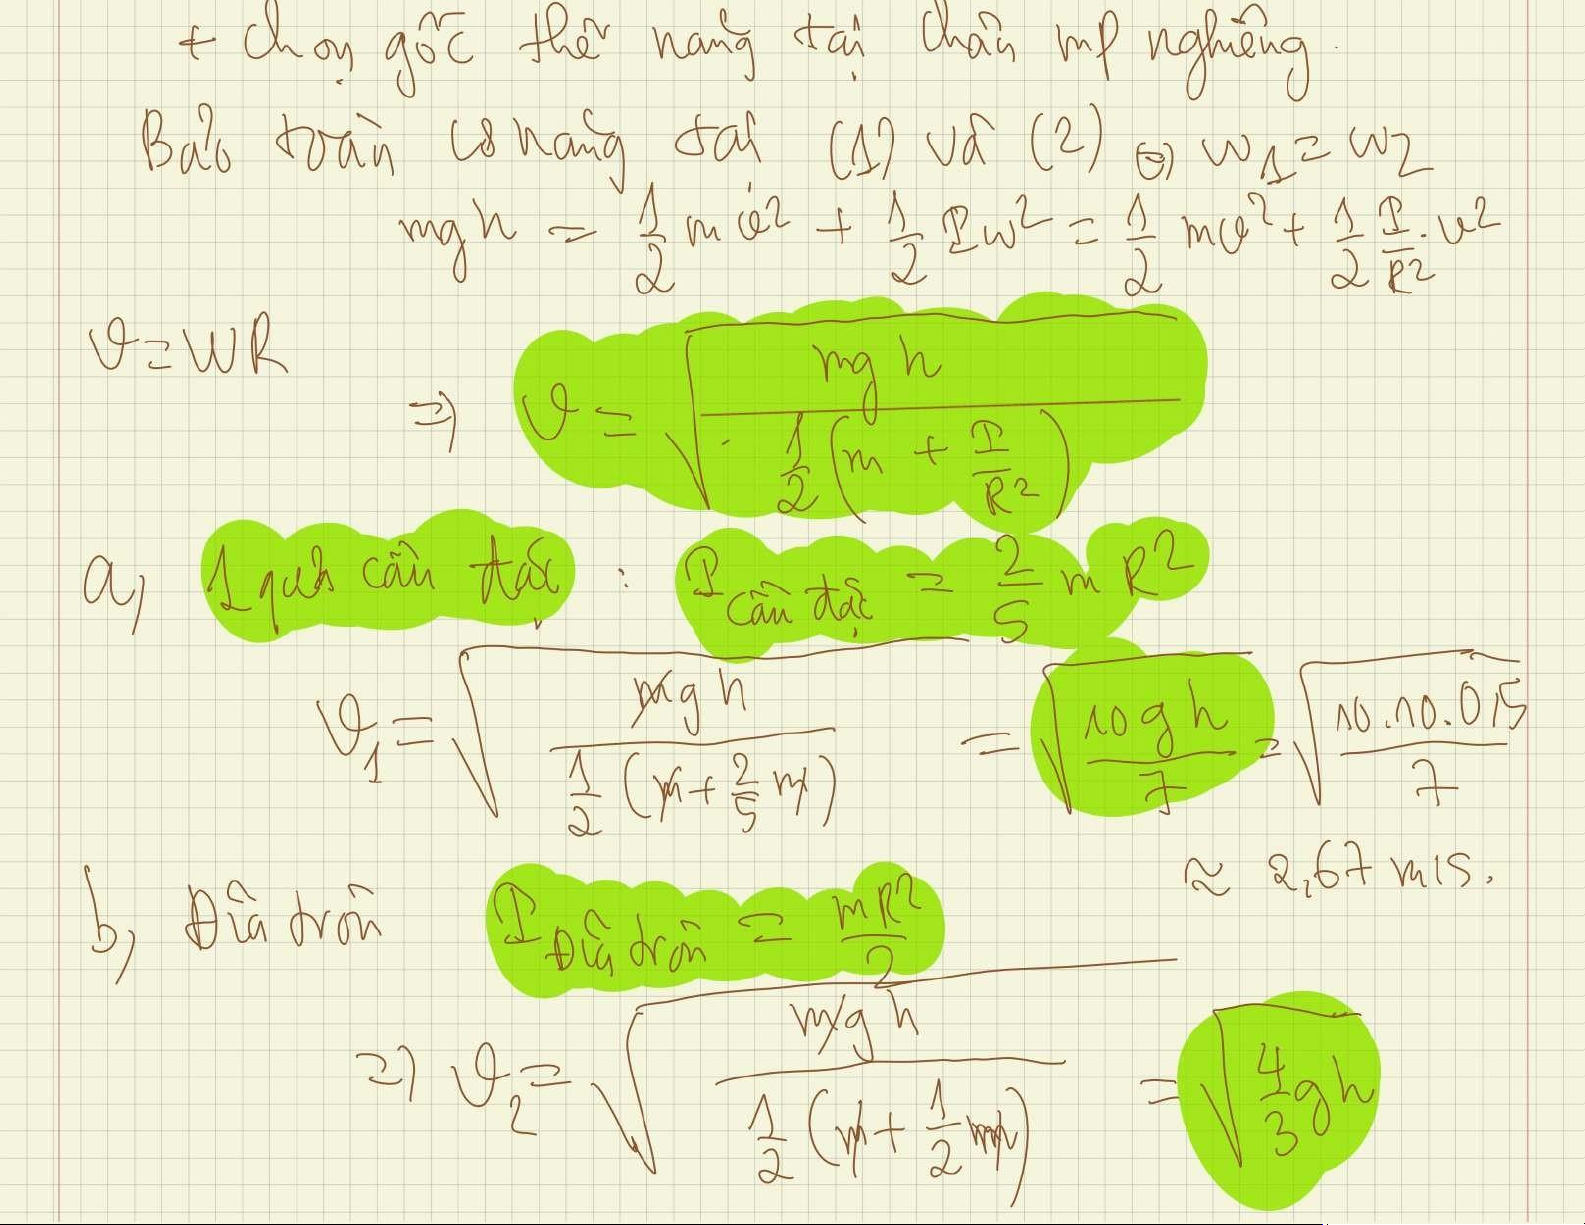 + chọn gốc thế năng tại chân mp nghiêng.
Bảo toàn cơ năng tại (1) và (2) ⇔ W1 = W2
mgh = 1/2 mv² + 1/2 Iω² = 1/2 mv² + 1/2 I/R² . v²
v = WR
⇒ v = √(mgh / (1/2 (m + I/R²)))
a, 1 quả cầu đặc : I cầu đặc = 2/5 mR²
v1 = √(mgh / (1/2 (m + 2/5 m))) = √(10gh / 7) = √(10.10.0,5 / 7)
≈ 2,67 m/s.
b, Đĩa tròn I Đĩa tròn = mR²/2
⇒ v2 = √(mgh / (1/2 (m + 1/2 m))) = √(4/3 gh)